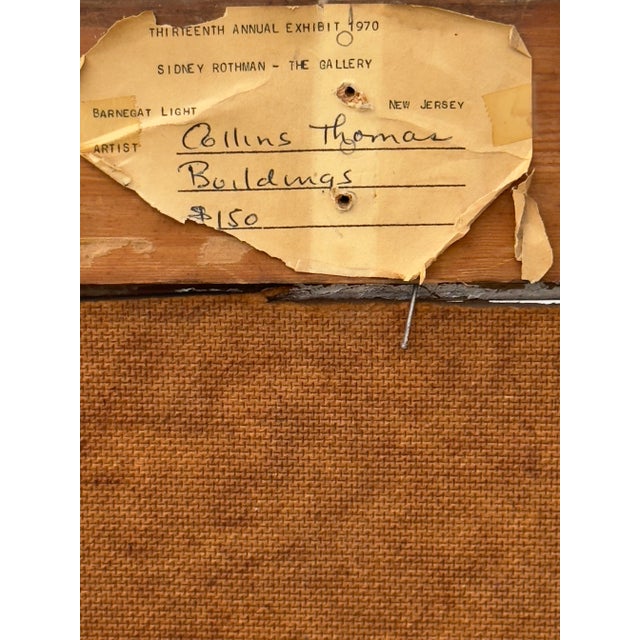 THIRTEENTH ANNUAL EXHIBIT 1970
SIDNEY ROTHMAN - THE GALLERY
BARNEGAT LIGHT NEW JERSEY
ARTIST Collins Thomas
Buildings
$150